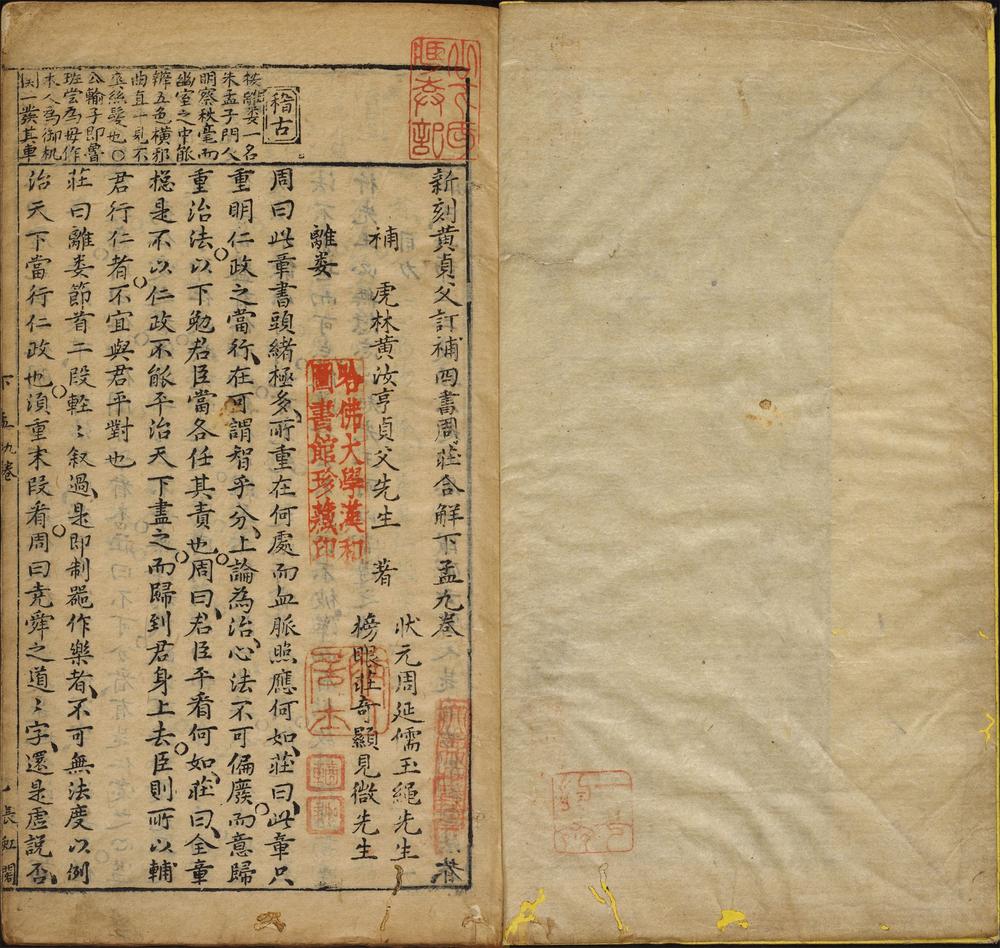 新刻黄貞父訂補四書周莊合解下孟九卷
狀元周延儒玉繩先生
補 虎林黃汝亨貞父先生 著
榜眼莊奇顯見微先生
離婁
周曰此章書頭緒極多所重在何處而血脈照應何如莊曰此章只
重明仁政之當行在可謂智乎分上論為治心法不可偏廢而意歸
重治法以下勉君臣當各任其責也周曰君臣平看何如莊曰全章
總是不以仁政不能平治天下盡之而歸到君身上去臣則所以輔
君行仁者不宜與君平對也
莊曰離婁節首二段輕〻叙過是即制器作樂者不可無法度以例
治天下當行仁政也須重末段看周曰堯舜之道〻字還是虛說否
稽古
按離婁一名
朱孟子門人
明察秋毫而
幽室之中能
辨五色橫邪
曲直
毫絲髮也○
公輸子即魯
班嘗為母作
木人為御机
一發其車
哈佛大學漢和
圖書館珍藏印
下孟九卷
長虹閣